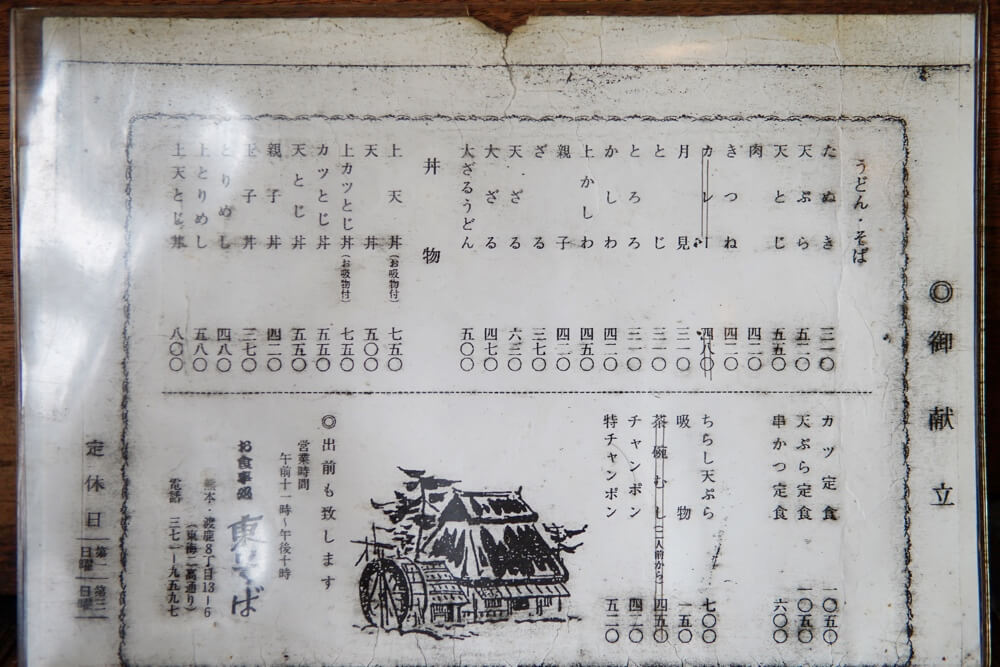 ◎御献立
うどん・そば
たぬき
天ぷら 五二〇
天とじ 五五〇
肉 四二〇
きつね 四二〇
カレー 四八〇
月見
とじ
とろろ
かしわ 四二〇
上かしわ 四五〇
親子 四二〇
ざる 三七〇
天ざる
大ざる 四七〇
大ざるうどん 五〇〇
丼物
上天丼(お吸物付) 七五〇
天丼 五〇〇
上カツとじ丼(お吸物付) 七五〇
カツとじ丼 五五〇
天とじ丼 五五〇
親子丼 四二〇
玉子丼 三七〇
とりめし 四八〇
上とりめし 五八〇
上天とじ丼 八〇〇
カツ定食 一〇五〇
天ぷら定食 一〇五〇
串かつ定食 六〇〇
ちらし天ぷら 七〇〇
吸物 一五〇
茶碗むし(二人前から) 四五〇
チャンポン 四二〇
特チャンポン 五二〇
◎出前も致します
営業時間
午前十一時〜午後十時
お食事処 東そば
熊本・渡鹿8丁目13-6
(東海二高通り)
電話 三七一-九五九七
定休日 第一日曜 第三日曜